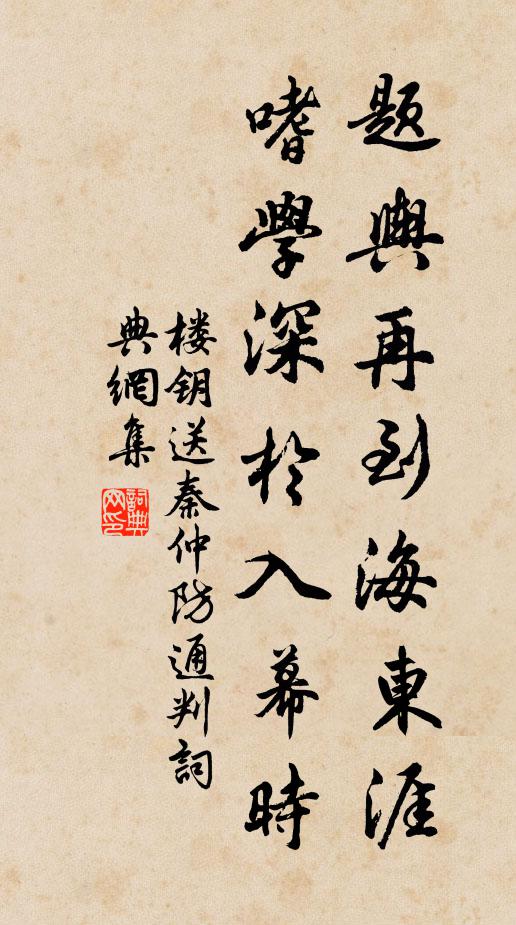 題輿再到海東涯
嗜學深於入幕時
楼钥送秦仲防通判詞
典網集
詞典網印